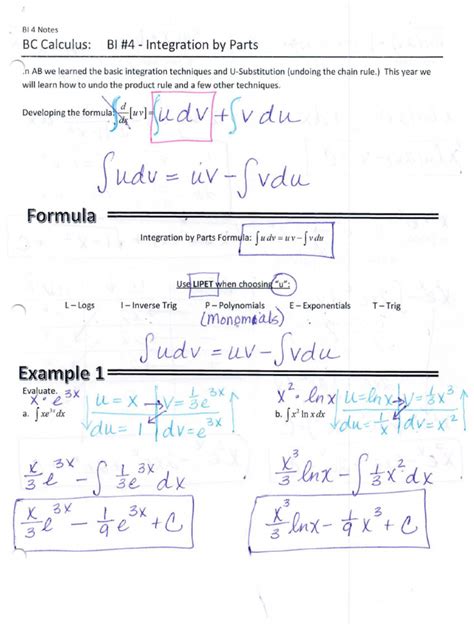 BI 4 Notes
BC Calculus: BI #4 - Integration by Parts
.n AB we learned the basic integration techniques and U-Substitution (undoing the chain rule.) This year we
will learn how to undo the product rule and a few other techniques.
Developing the formula: ∫ d/dx [uv] = ∫udv + ∫vdu
∫udv = uv - ∫vdu
Formula
Integration by Parts Formula: ∫u dv = uv - ∫v du
Use LIPET when choosing "u":
L – Logs I – Inverse Trig P – Polynomials E – Exponentials T – Trig
(Monomials)
∫udv = uv - ∫vdu
Example 1
Evaluate.
x · e^3x u = x v = 1/3 e^3x
a. ∫xe^3x dx du = 1 dv = e^3x
x/3 e^3x - ∫1/3 e^3x dx
x/3 e^3x - 1/9 e^3x + C
x² · lnx u = lnx v = 1/3 x³
b. ∫x² ln x dx du = 1/x dv = x²
x³/3 lnx - ∫1/3 x² dx
x³/3 lnx - 1/9 x³ + C